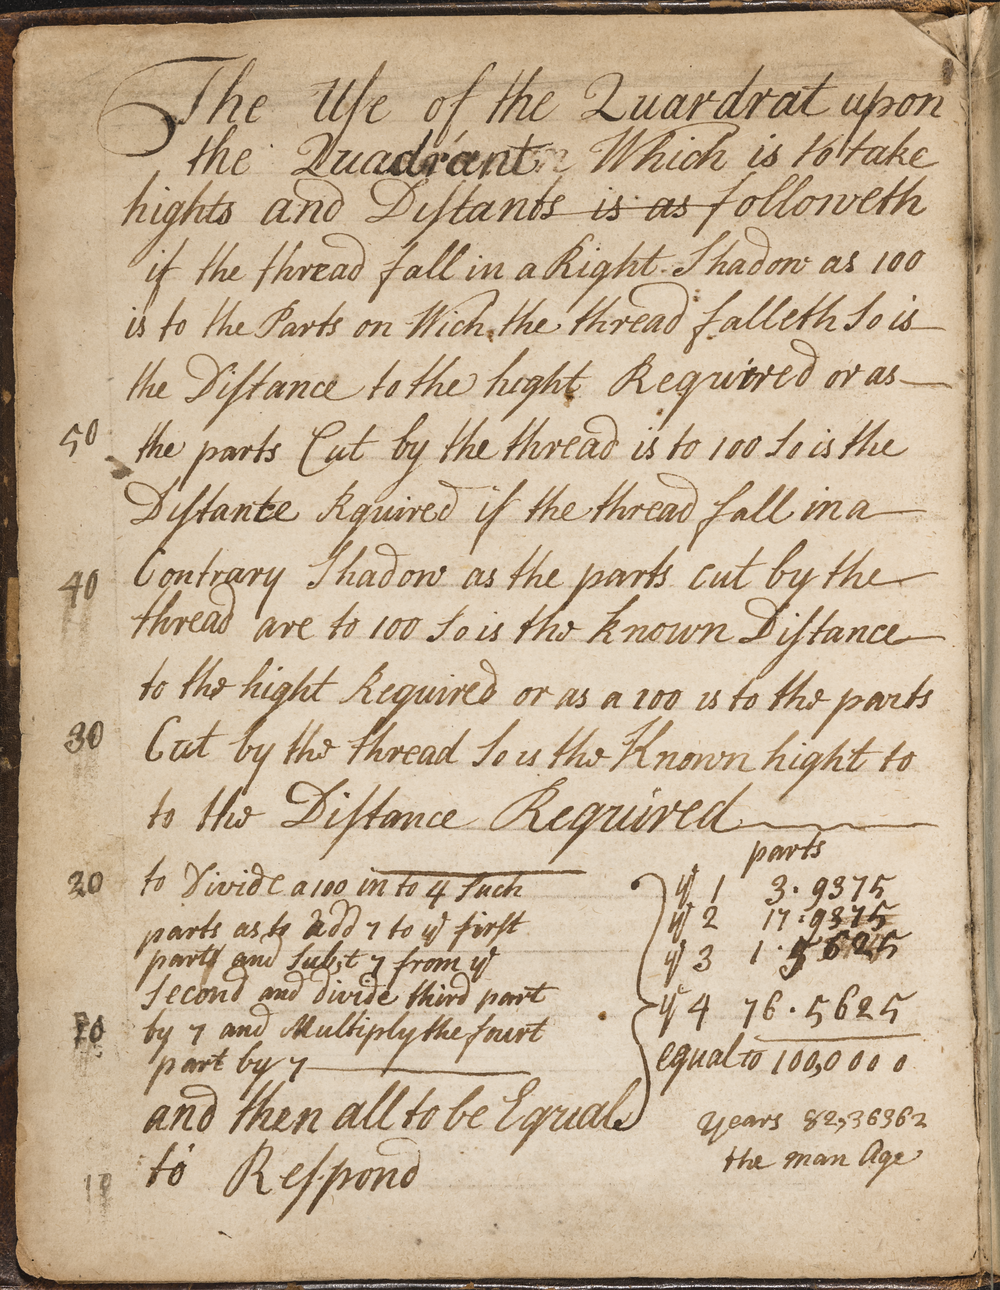 The Use of the Quardrat upon
the Quadrant Which is to take
hights and Distants is as followeth
if the thread fall in a Right Shadow as 100
is to the Parts on Wich the thread falleth So is
the Distance to the hight Requirred or as
50
the parts Cut by the thread is to 100 So is the
Distante Rquired if the thread fall in a
40
Contrary Shadow as the parts cut by the
thread are to 100 So is the known Distance
to the hight Required or as a 100 is to the parts
30
Cut by the thread So is the Known hight to
to the Distance Required
20
to Divide a 100 in to 4 Such
parts as to add 7 to ye first
part and Subst 7 from ye
Second and divide third part
10
by 7 and Multiply the fourt
part by 7
and then all to be Equal
to Respond
10
parts
ye 1 3.9375
ye 2 17.9375
ye 3 1.5625
ye 4 76.5625
equal to 100,0000
years 82,36362
the man Age